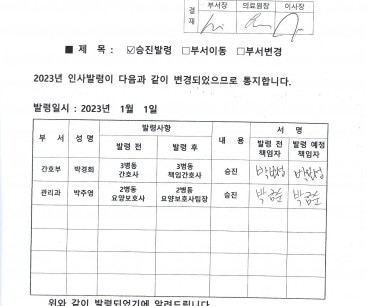 결 재 부서장 의료원장 이사장
■ 제 목 : ☑승진발령 □부서이동 □부서변경
2023년 인사발령이 다음과 같이 변경되었으므로 통지합니다.
발령일시 : 2023년 1월 1일
부 서 성 명 발령사항 내 용 서 명
발령 전 발령 후 발령 전 책임자 발령 예정 책임자
간호부 박경희 3병동 간호사 3병동 책임간호사 승진
관리과 박주영 2병동 요양보호사 2병동 요양보호사팀장 승진
위와 같이 발령되었기에 알려드립니다